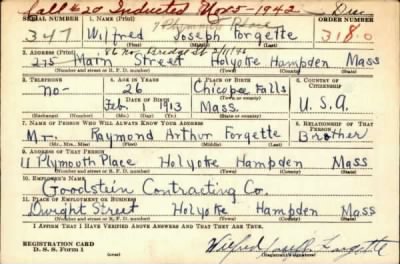 Call #20 Inducted Nov-5-1942
SERIAL NUMBER 1. NAME (Print) ORDER NUMBER
7 Plymouth Place
347 Wilfred Joseph Forgette 3180
(First) (Middle) (Last)
2. ADDRESS (Print)
275 Main Street Holyoke Hampden Mass
(Number and street or R. F. D. number) (Town) (County) (State)
3. TELEPHONE 4. AGE IN YEARS 5. PLACE OF BIRTH 6. COUNTRY OF CITIZENSHIP
no- 26 Chicopee Falls
DATE OF BIRTH
Feb 1 '13 Mass. U.S.A.
(Mo.) (Day) (Yr.)
7. NAME OF PERSON WHO WILL ALWAYS KNOW YOUR ADDRESS 8. RELATIONSHIP OF THAT PERSON
Mr. Raymond Arthur Forgette Brother
(Mr., Mrs., Miss) (First) (Middle) (Last)
9. ADDRESS OF THAT PERSON
11 Plymouth Place Holyoke Hampden Mass
(Number and street or R. F. D. number) (Town) (County) (State)
10. EMPLOYER'S NAME
Goodstein Contracting Co.
11. PLACE OF EMPLOYMENT OR BUSINESS
Dwight Street Holyoke Hampden Mass
(Number and street or R. F. D. number) (Town) (County) (State)
I AFFIRM THAT I HAVE VERIFIED ABOVE ANSWERS AND THAT THEY ARE TRUE.
REGISTRATION CARD
D. S. S. Form 1
Wilfred Joseph Forgette
(Registrant's signature)